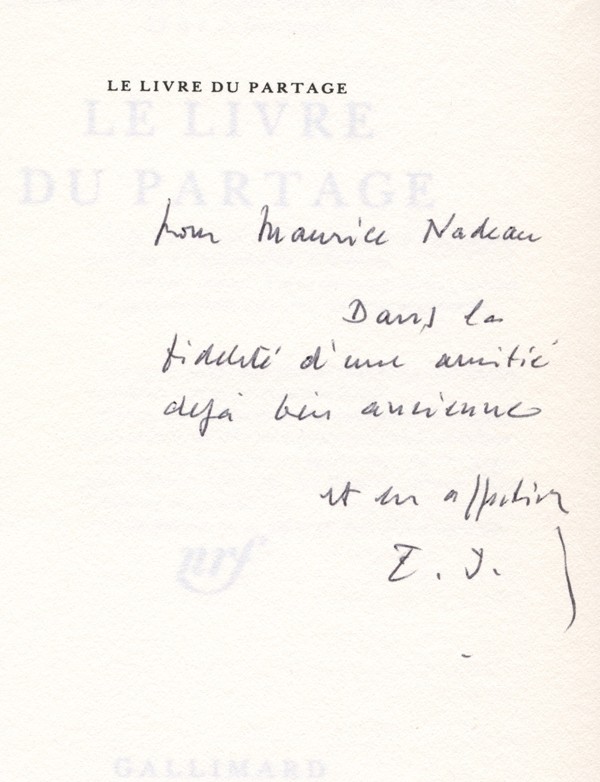 LE LIVRE DU PARTAGE
LE LIVRE
DU PARTAGE
pour Maurice Nadeau
Dans la
fidélité d'une amitié
déjà bien ancienne
et en affection
E. J.
nrf
GALLIMARD